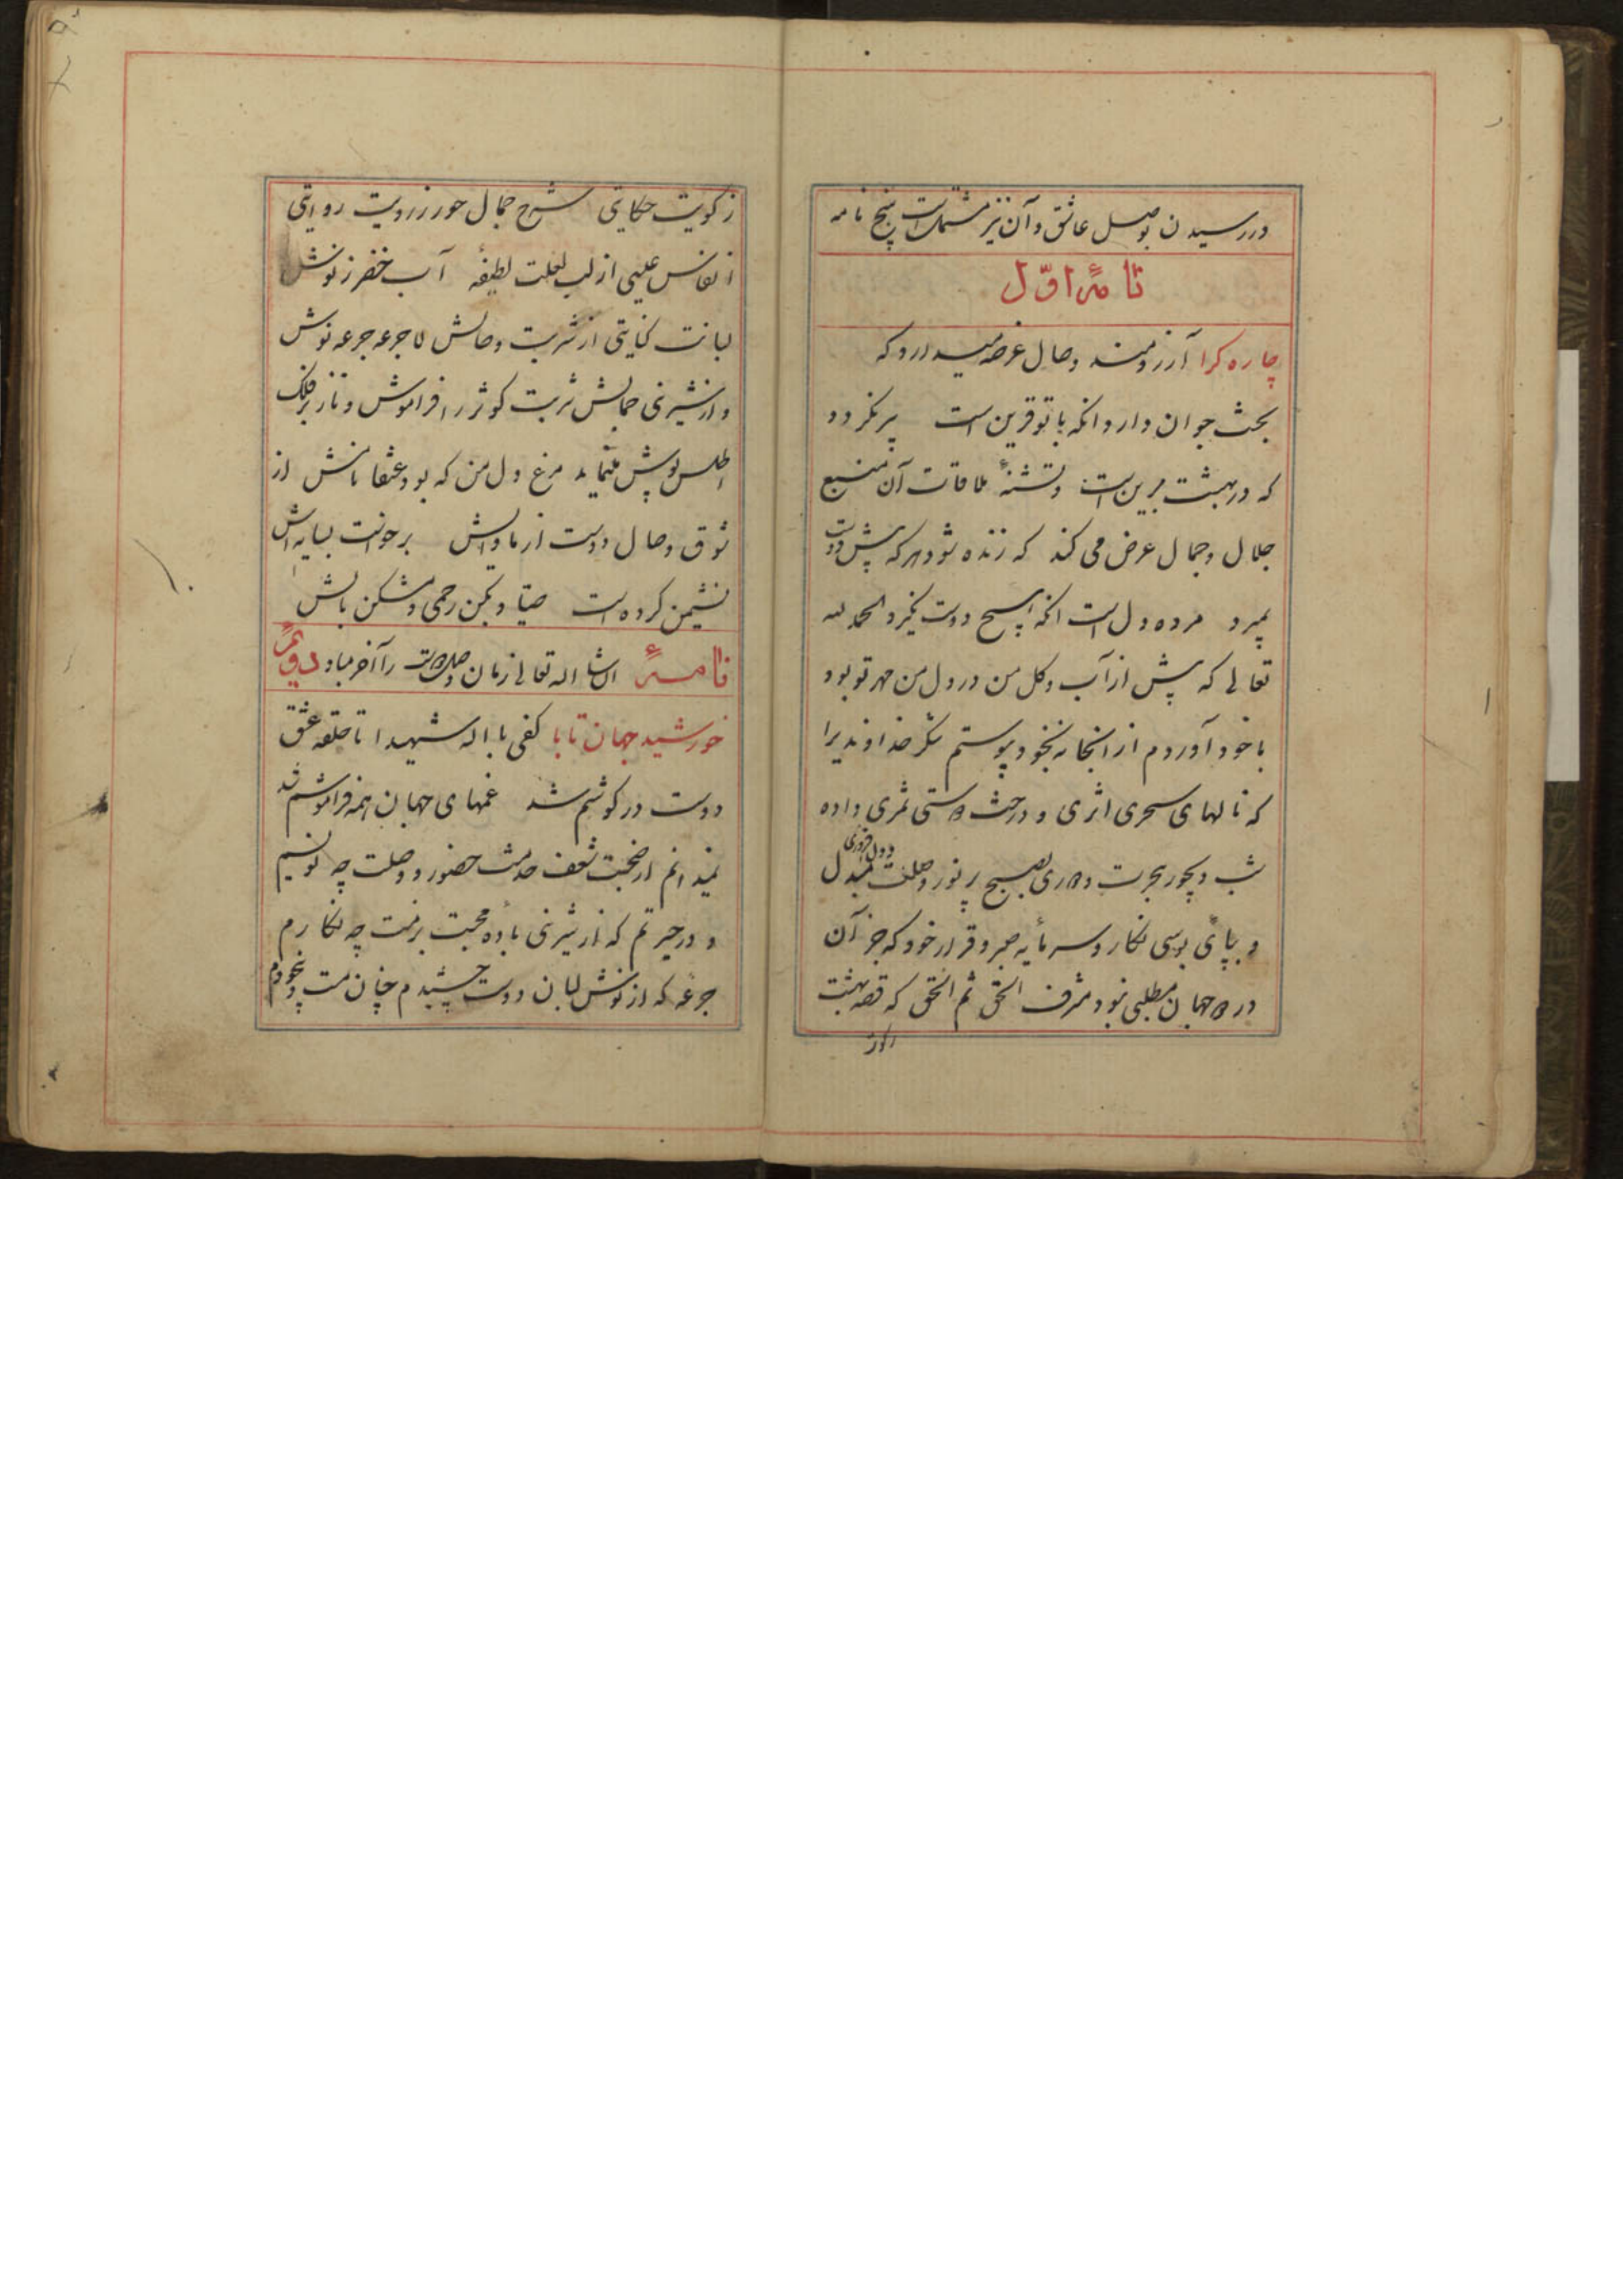 در رسیدن بوصل عاشق و آن نیز مشتمل است پنج نامه
نامهٔ اوّل
چاره کرا آرزومند وصال عرضه میدارد که
بخت جوان دارد انکه با تو قرین است پیر نکردد
که در بهشت برین است و تشنهٔ ملاقات آن منبع
جلال و جمال عرض می کند که زنده شود هر که پیش دوست
بمیرد مرده دل است انکه هیچ دوست نکیرد الحمد لله
تعالی که پیش از آب و کل من در دل من مهر تو بود
با خود آوردم از انجا نه بخود بربستم شکر خداوندیرا
که نالهای سحری اثری و درخت دوستی ثمری داده
شب دیجور هجرت و دوری بصبح پر نور وصلت مبدل
و بپای بوسی نکار و سرمایه صبر و قرار خود که جز آن
در دو جهان مطلبی نبود مشرف الحق ثم الحق که قصه بهشت
ز کویت حکایتی شرح جمال حور ز رویت روایتی
انفاس عیسی از لب لعلت لطیفهٔ آب خضر ز نوش
لبانت کنایتی از شربت وصالش لاجرعه جرعه نوش
و از شیرنی جمالش شربت کوثر را فراموش و ناز بر فلک
اطلس پوش مینماید مرغ دل من که بود عنقا نامش از
شوق وصال دوست ارماوایش برخواست بسایه اش
نشیمن کرده است صیاد بکن رحمی و مشکن بالش
نامهٔ انشا اله تعالی زمان وصلت را آخر مباد دویم
خورشید جهان تابا کفی با اله شهیدا تا حلقه عشق
دوست در کوشم شد غمهای جهان همه فراموشم شد
نمیدانم از ضجت شعف خدمت حضور و وصلت چه نویسم
و در حیرتم که از شیرنی باده محبت بزمت چه نکارم
جرعه که از نوش لبان دوست چشیدم چنان مست و بیخودم